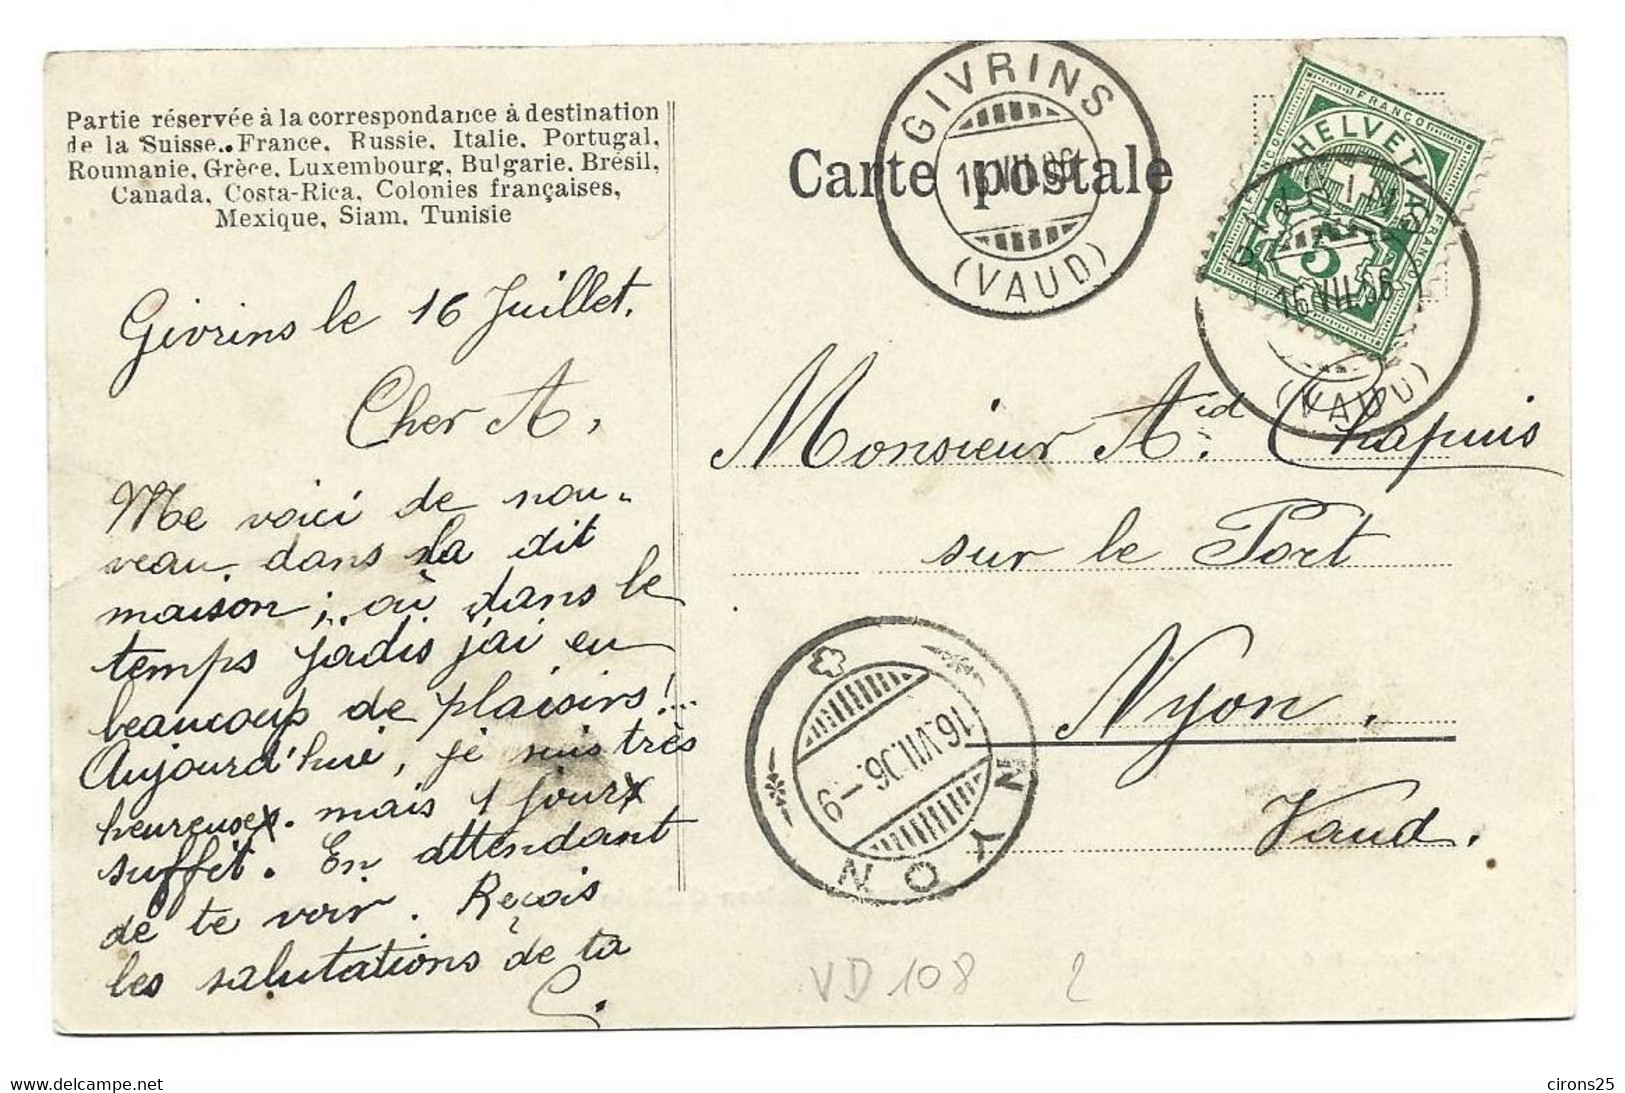 Partie réservée à la correspondance à destination
de la Suisse, France, Russie, Italie, Portugal,
Roumanie, Grèce, Luxembourg, Bulgarie, Brésil,
Canada, Costa-Rica, Colonies françaises,
Mexique, Siam, Tunisie
Givrins le 16 Juillet.
Cher A,
Me voici de nou-
veau dans la dit
maison; où dans le
temps jadis j'ai eu
beaucoup de plaisirs!...
Aujourd'hui, je suis très
heureuse. mais 1 jour
suffit. En attendant
de te voir. Reçois
les salutations de ta
C.
Carte postale
GIVRINS
16.VII.06
(VAUD)
FRANCO
HELVETIA
FRANCO
FRANCO
5
GIVRINS
16.VII.06
(VAUD)
Monsieur Aid. Chapuis
sur le Port
Nyon.
Vaud.
NYON
16.VII.06.-9
VD 108 2
https://www.delcampe.net
cirons25